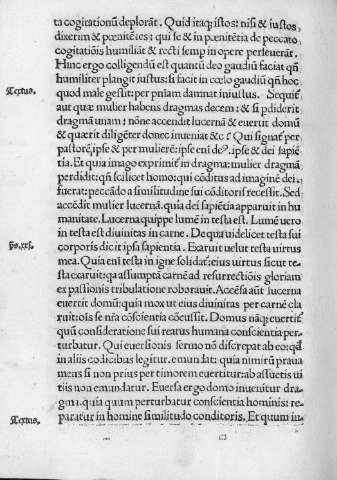 ta cogitationū deplorāt. Quid itaq; istos: nisi & iustos,
dixerim & pœnitētes: qui se & in pœnitētia de peccato
cogitatiōis humiliāt & recti semp in opere perseuerāt.
Hinc ergo colligendū est quantū deo gaudiū faciat qn̄
humiliter plangit iustus: si facit in cœlo gaudiū qn̄ hoc
Textus.
quod male gessit: per pn̄iam damnat iniustus. Sequit᷑
aut quæ mulier habens dragmas decem: & si pdiderit
dragmā unam: nōne accendit lucernā & euertit domū
& quærit diligēter donec inueniat &c? Qui signat᷑ per
pastorē, ipse & per mulierē: ipse eni deꝰ. ipse & dei sapiē
tia. Et quia imago exprimit᷑ in dragma: mulier dragmā
perdidit: qn̄ scilicet homo: qui cōditus ad imaginē dei
fuerat: peccādo a similitudine sui cōditoris recessit. Sed
accēdit mulier lucernā. quia dei sapiētia apparuit in hu
manitate. Lucerna quippe lumē in testa est. Lumē uero
in testa est diuinitas in carne. De qua uidelicet testa sui
ps.xxi.
corporis dicit ipsa sapientia. Exaruit uelut testa uirtus
mea. Quia eni testa in igne solidat᷑: eius uirtus sicut te-
sta exaruit: qa assumptā carnē ad resurrectiōis gloriam
ex passionis tribulatione roborauit. Accēsa aut lucerna
euertit domū: quia mox ut eius diuinitas per carnē cla
ruit: oīs se nr̄a cōscientia cōcussit. Domus nāq; euertit᷑
quū consideratione sui reatus humana conscientia per-
turbatur. Qui euersionis sermo nō discrepat ab eo: qd̄
in aliis codicibus legitur. emundat: quia nimirū praua
mens si non prius per timorem euertitur: ab assuetis ui
tiis non emundatur. Euersa ergo domo inuenitur dra-
gma. quia quum perturbatur conscientia hominis: re-
Textus.
paratur in homine similitudo conditoris. Et quum in-